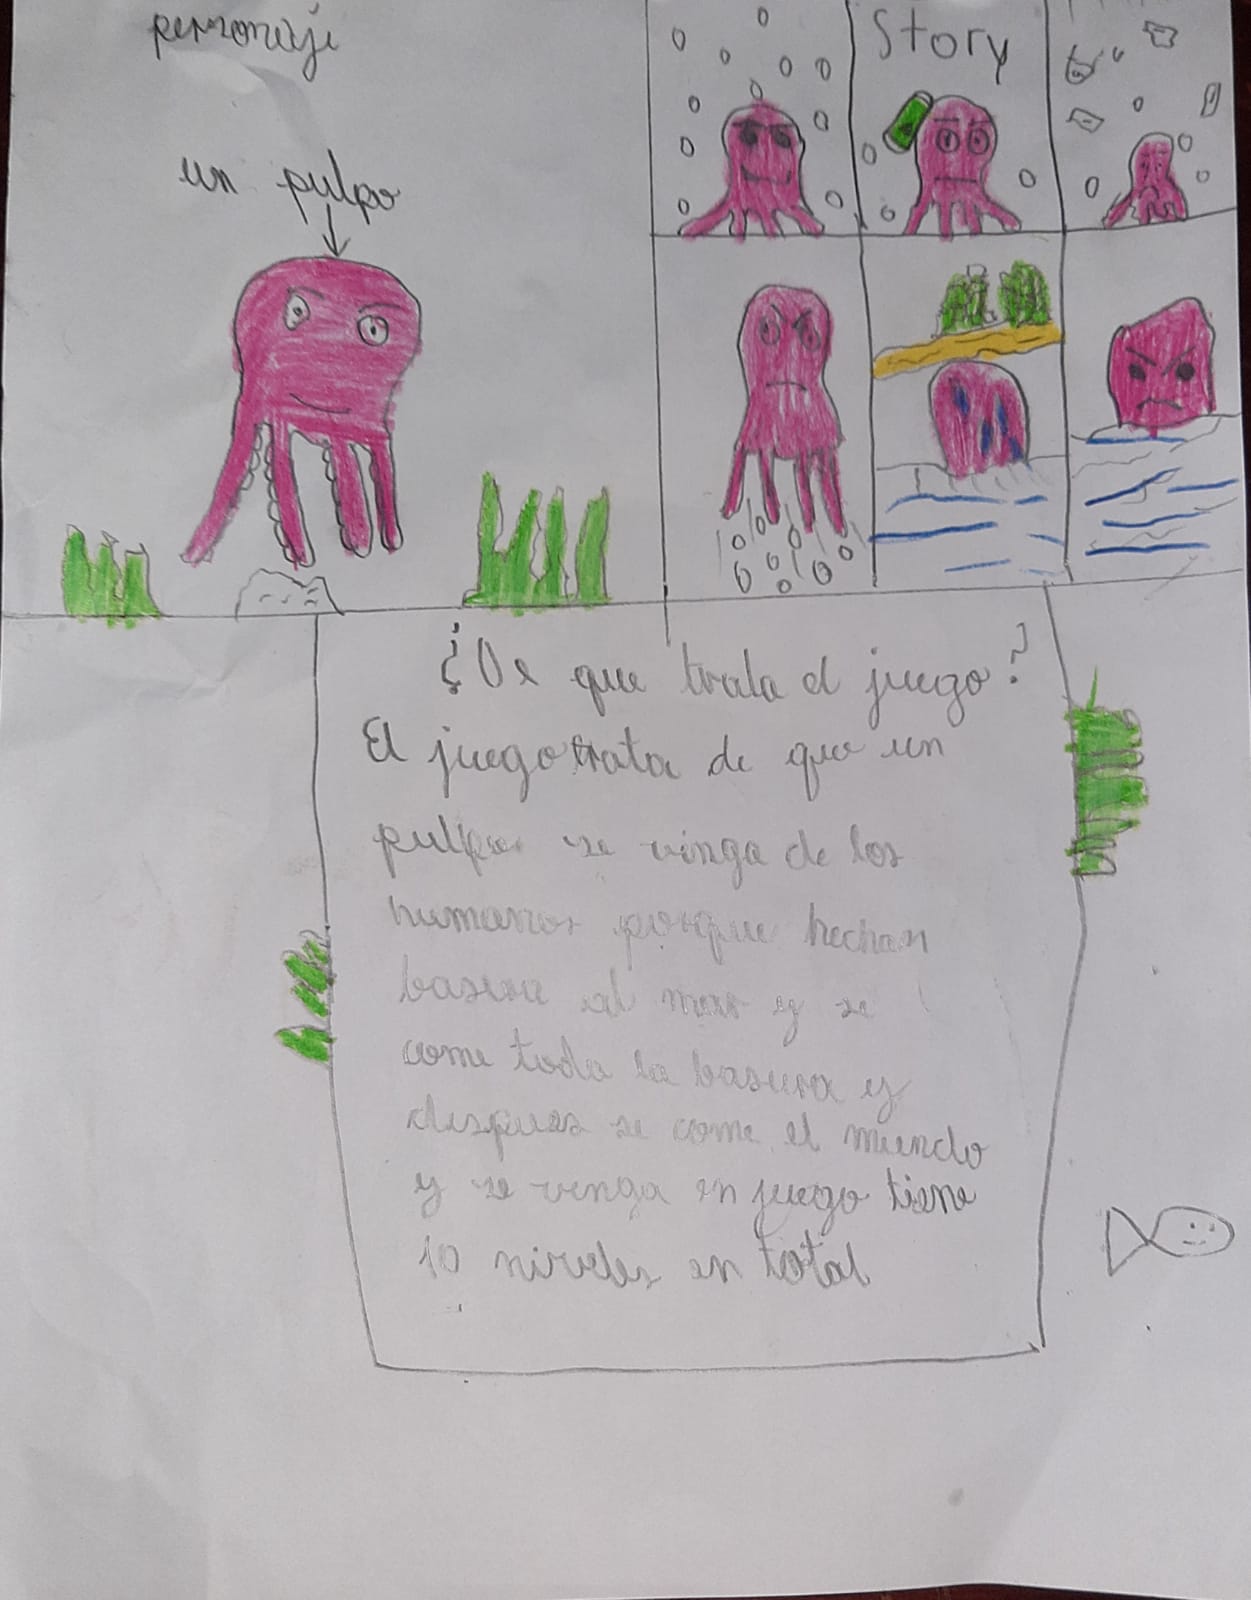 personaje
un pulpo
Story
¿De que trata el juego?
El juego trata de que un
pulpo se vinga de los
humanos porque hechan
basura al mar y se
come toda la basura y
despues se come el mundo
y se venga en juego tiene
10 niveles en total